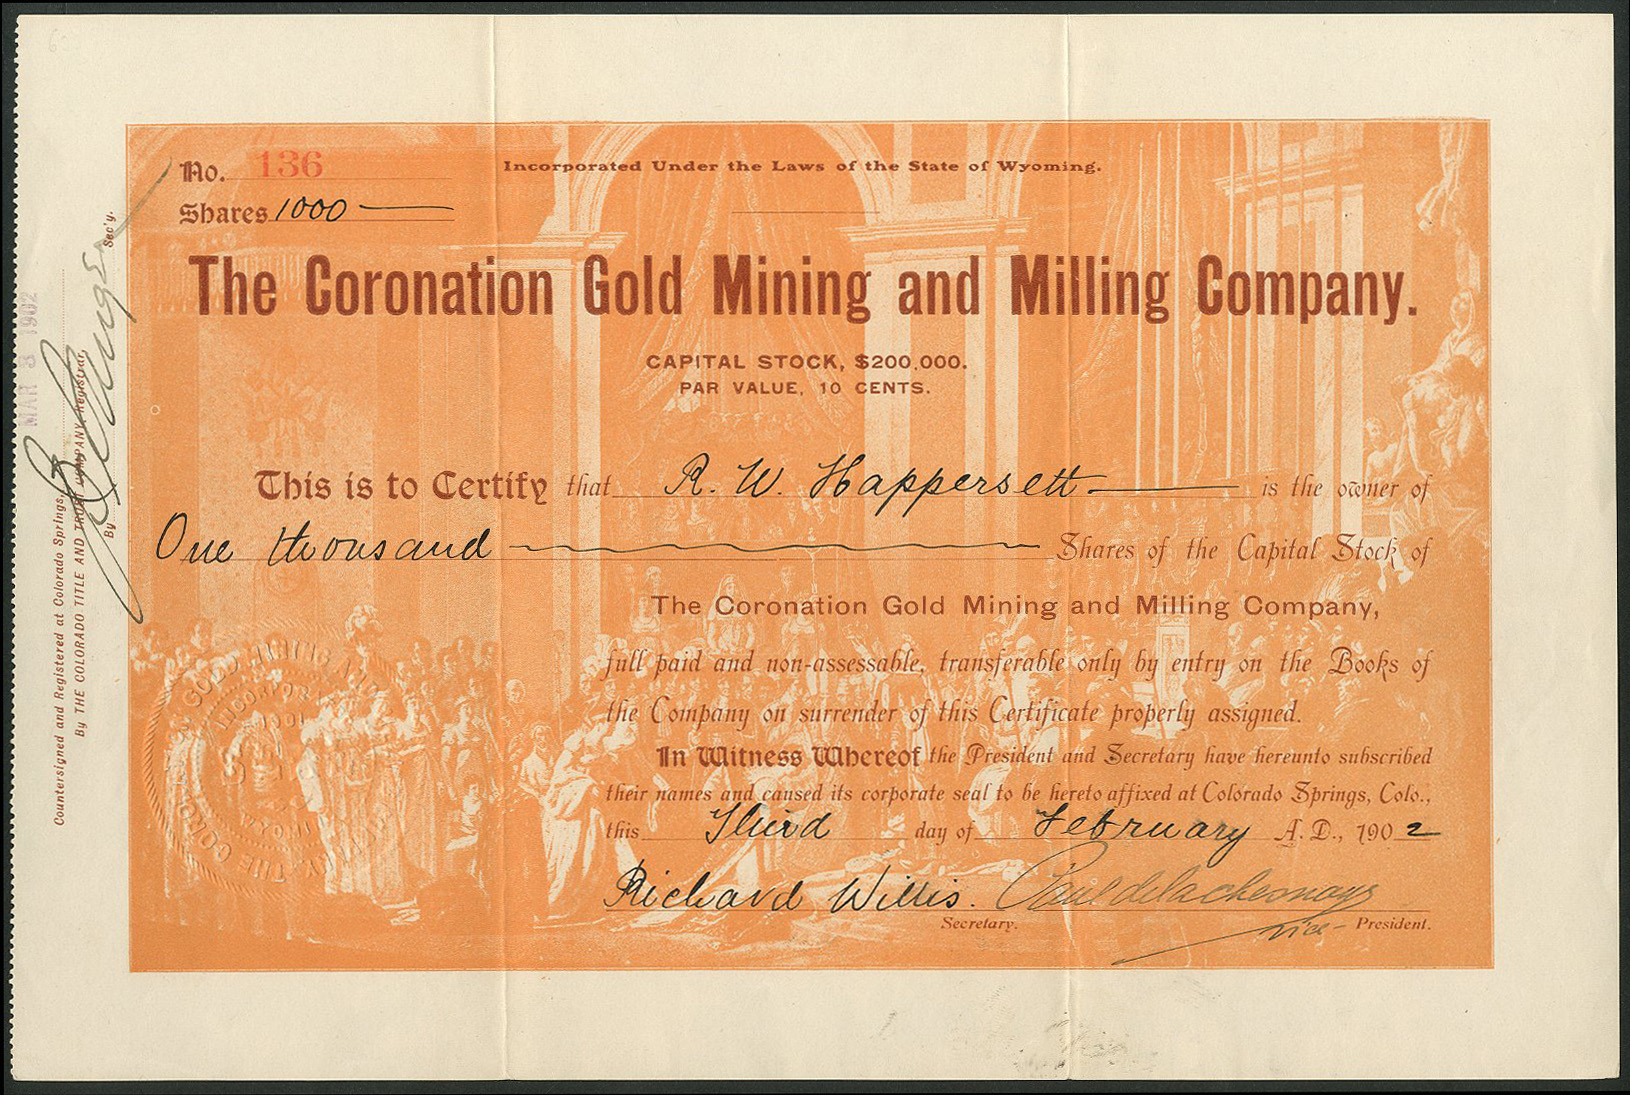 No. 136
Incorporated Under the Laws of the State of Wyoming.
Shares 1000
The Coronation Gold Mining and Milling Company.
CAPITAL STOCK, $200,000.
PAR VALUE, 10 CENTS.
This is to Certify that R. W. Happersett is the owner of
One thousand Shares of the Capital Stock of
The Coronation Gold Mining and Milling Company,
full paid and non-assessable, transferable only by entry on the Books of
the Company on surrender of this Certificate properly assigned.
In Witness Whereof the President and Secretary have hereunto subscribed
their names and caused its corporate seal to be hereto affixed at Colorado Springs, Colo.,
this Third day of February A. D., 1902
Richard Willis.
Secretary.
vice- President.
Countersigned and Registered at Colorado Springs,
By THE COLORADO TITLE AND TRUST COMPANY, Registrar,
By Sec'y.
MAR 3 1902